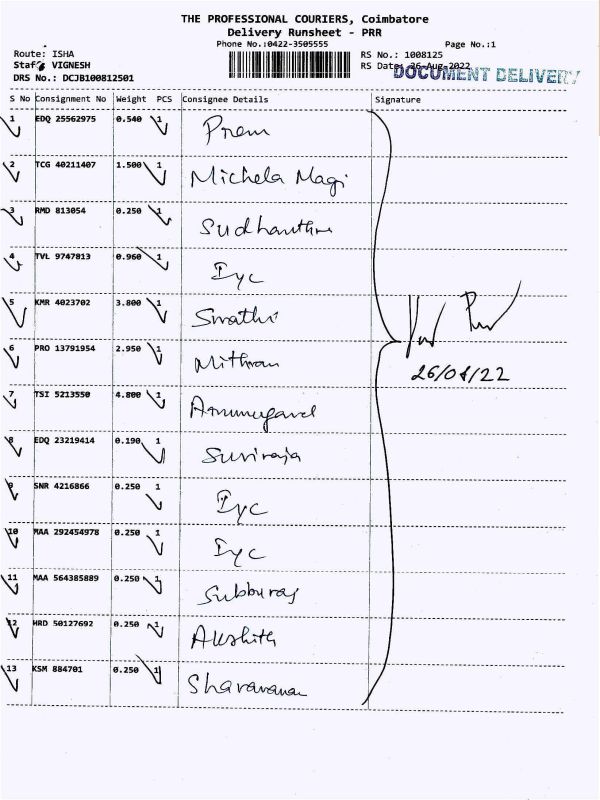 THE PROFESSIONAL COURIERS, Coimbatore
Delivery Runsheet - PRR
Phone No.:0422-3505555 Page No.:1
Route: ISHA RS No.: 1008125
Staff VIGNESH RS Date: 26-Aug-2022
DOCUMENT DELIVERY
DRS No.: DCJB100812501
S No Consignment No Weight PCS Consignee Details Signature
1 EDQ 25562975 0.540 1 Prem
2 TCG 40211407 1.500 1 Michela Magi
3 RMD 813054 0.250 1 Sudhanthra
4 TVL 9747813 0.960 1 Iyc
5 KMR 4023702 3.800 1 Swathi
6 PRO 13791954 2.950 1 Mithran
26/08/22
7 TSI 5213550 4.800 1 Arumugavel
8 EDQ 23219414 0.190 1 Suriraja
9 SNR 4216866 0.250 1 Iyc
10 MAA 292454978 0.250 1 Iyc
11 MAA 564385889 0.250 1 Subburaj
12 HRD 50127692 0.250 1 Akshith
13 KSM 884701 0.250 1 Sharavanan